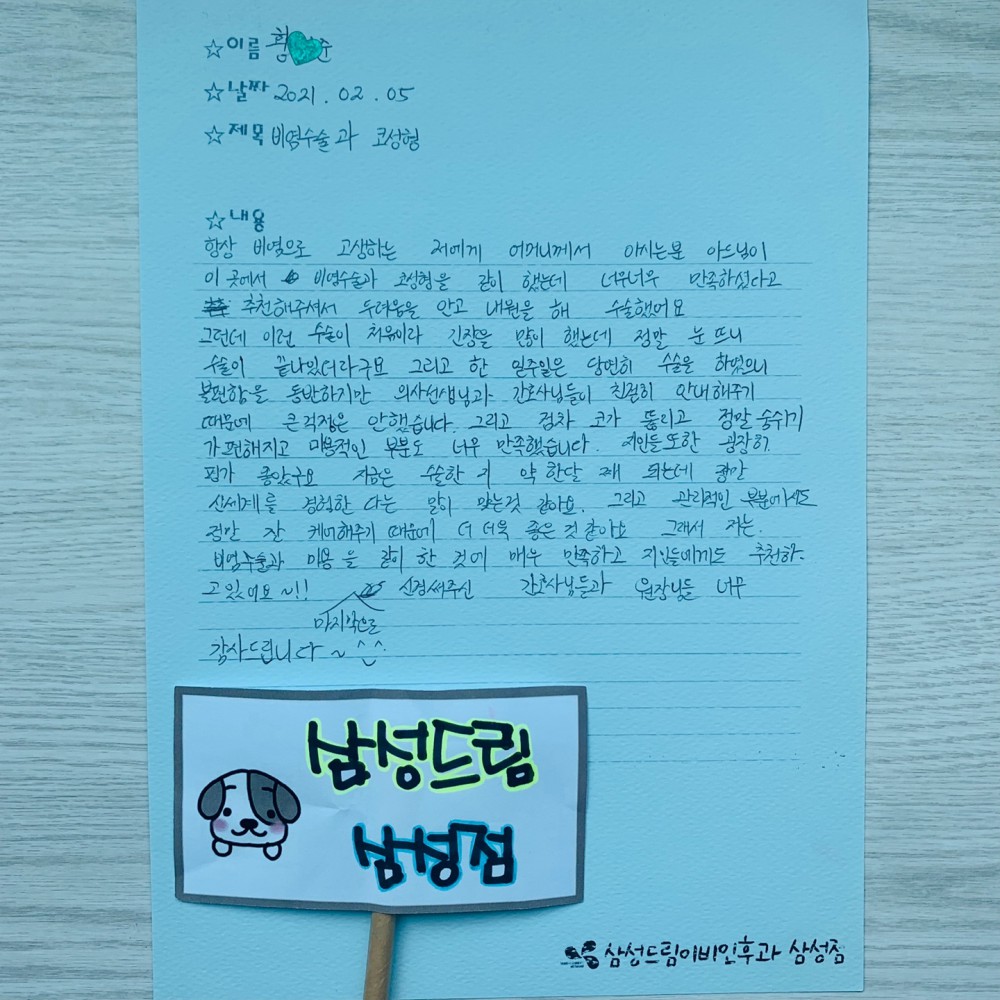 ☆이름 황 준
☆날짜 2021. 02. 05
☆제목 비염수술과 코성형
☆내용
항상 비염으로 고생하는 저에게 어머니께서 아시는분 아드님이
이 곳에서 비염수술과 코성형을 같이 했는데 너무너무 만족하셨다고
추천해주셔서 두려움을 안고 내원을 해 수술했어요
그런데 이런 수술이 처음이라 긴장을 많이 했는데 정말 눈 뜨니
수술이 끝나있더라구요 그리고 한 일주일은 당연히 수술을 하였으니
불편함을 동반하지만 의사선생님과 간호사님들이 친절히 안내해주기
때문에 큰걱정은 안했습니다. 그리고 점차 코가 뚫리고 정말 숨쉬기
가 편해지고 미용적인 부분도 너무 만족했습니다. 지인들또한 굉장히
평가 좋았구요 지금은 수술한 지 약 한달 째 되는데 정말
신세계를 경험한 다는 말이 맞는것 같아요. 그리고 관리적인 부분에서도
정말 잘 케어해주기 때문에 더 더욱 좋은 것 같아요 그래서 저는.
비염수술과 미용을 같이 한 것에 매우 만족하고 지인들에게도 추천하
고 있어요~!! 신경써주신 간호사님들과 원장님들 너무
마지막으로
감사드립니다~ ^_^
삼성드림
삼성점
삼성드림이비인후과 삼성점